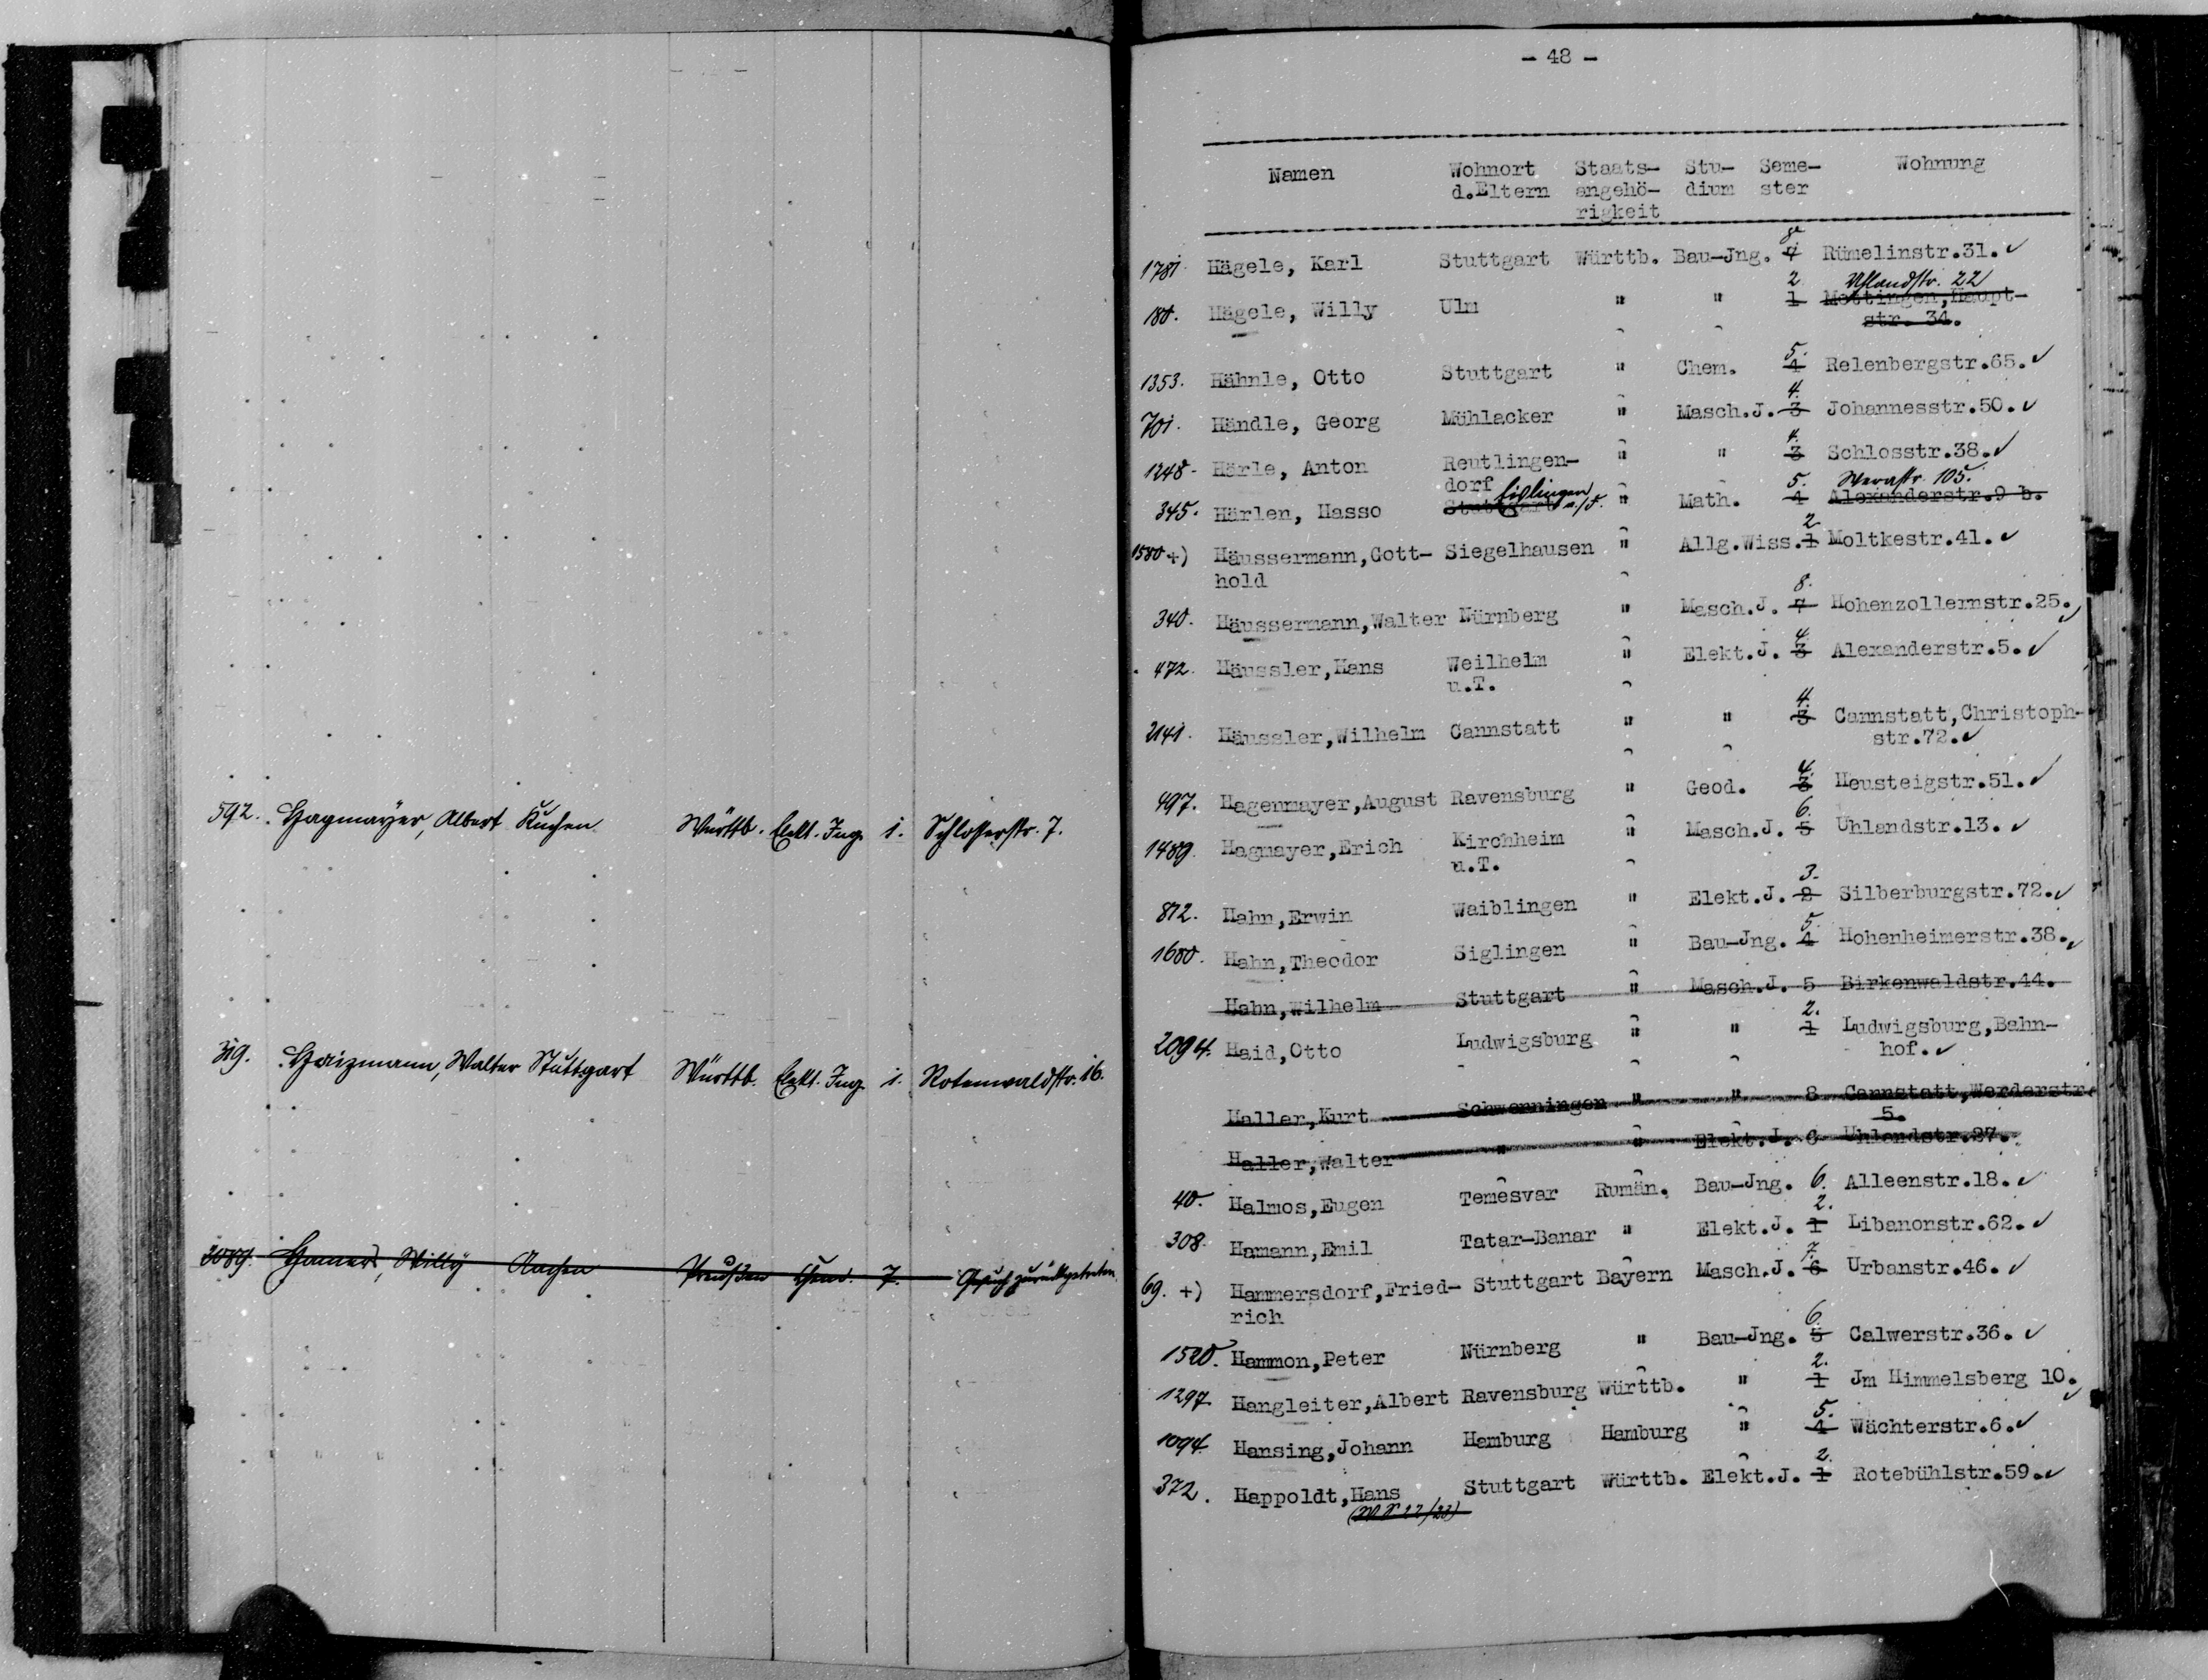 592. Hagmayer, Albert Kuchen Württb. Elekt. Ing. 1. Schlosserstr. 7.
319. Haizmann, Walter Stuttgart Württb. Elekt. Ing. 1. Rotenwaldstr. 16.
2089. Willy Aachen Preußen Chem. 7. Gesuch zurückgetreten.
- 48 -
Namen Wohnort Staats- Stu- Seme- Wohnung
d.Eltern angehö- dium ster
rigkeit
1781. Hägele, Karl Stuttgart Württb. Bau-Jng. Rümelinstr.31. ✓
2 Uhlandstr. 22
180. Hägele, Willy Ulm " " 1 Mettingen,Haupt-
str. 34.
5.
1353. Hähnle, Otto Stuttgart " Chem. 4 Relenbergstr.65. ✓
4.
701. Händle, Georg Mühlacker " Masch.J. 3 Johannesstr.50. ✓
4.
1248. Härle, Anton Reutlingen- " " 3 Schlosstr.38. ✓
dorf
Eislingen a./F. 5. Werastr. 105.
345. Härlen, Hasso Stuttgart " Math. 4 Alexanderstr.9 b.
2
1580 +) Häussermann,Gott- Siegelhausen " Allg.Wiss. 1 Moltkestr.41. ✓
hold
8.
340. Häussermann,Walter Nürnberg " Masch.J. 7 Hohenzollernstr.25. ✓
4.
472. Häussler,Hans Weilheim " Elekt.J. 3 Alexanderstr.5. ✓
u.T.
4.
2141. Häussler,Wilhelm Cannstatt " " 3 Cannstatt,Christoph-
str.72. ✓
4.
497. Hagenmayer,August Ravensburg " Geod. 3 Heusteigstr.51. ✓
6.
1489. Hagmayer,Erich Kirchheim " Masch.J. 5 Uhlandstr.13. ✓
u.T.
3.
872. Hahn,Erwin Waiblingen " Elekt.J. 2 Silberburgstr.72. ✓
5.
1680. Hahn,Theodor Siglingen " Bau-Jng. 4 Hohenheimerstr.38. ✓
Hahn,Wilhelm Stuttgart " Masch.J. 5 Birkenwaldstr.44.
2.
2094. Haid,Otto Ludwigsburg " " 1 Ludwigsburg,Bahn-
hof. ✓
Haller,Kurt Schwenningen " " 8 Cannstatt,Werderstr.
5.
Haller,Walter " " Elekt.J. Uhlandstr.27.
40. Halmos,Eugen Temesvar Rumän. Bau-Jng. 6. Alleenstr.18. ✓
2.
308. Hamann,Emil Tatar-Banar " Elekt.J. 1 Libanonstr.62. ✓
7.
69. +) Hammersdorf,Fried- Stuttgart Bayern Masch.J. 6 Urbanstr.46. ✓
rich
6.
1520. Hammon,Peter Nürnberg " Bau-Jng. 5 Calwerstr.36. ✓
2.
1297. Hangleiter,Albert Ravensburg Württb. " 1 Jm Himmelsberg 10. ✓
5.
1094. Hansing,Johann Hamburg Hamburg " 4 Wächterstr.6. ✓
2.
372. Happoldt,Hans Stuttgart Württb. Elekt.J. 1 Rotebühlstr.59. ✓
(W S 22/23)